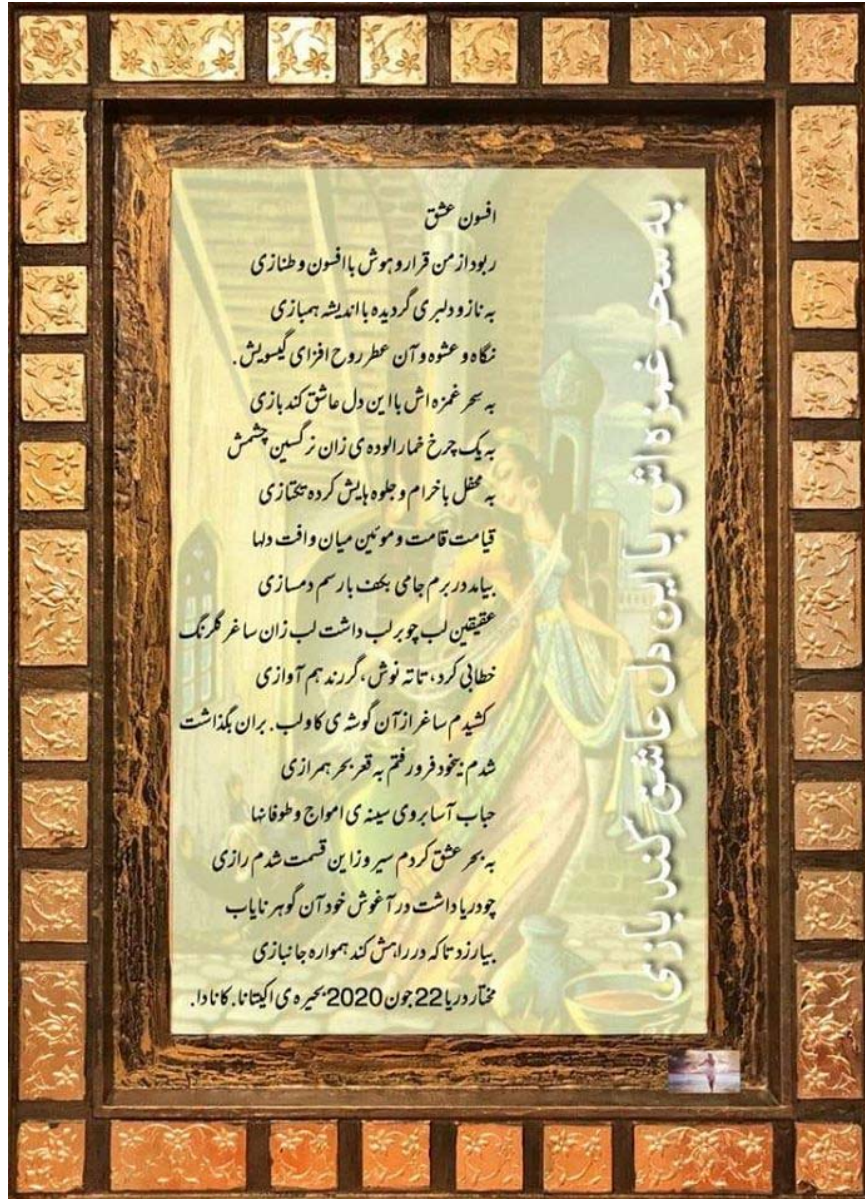 افسون عشق
ربود از من قرار و هوش با افسون و طنازی
به ناز و دلبری گردیده با اندیشه همبازی
نگاه و عشوه و آن عطر روح افزای گیسویش.
به سحر غمزه اش با این دل عاشق کند بازی
به یک چرخ خمار الوده ی زان نرگسین چشمش
به محفل با خرام و جلوه هایش کرده یکتازی
قیامت قامت و موئین میان و افت دلها
بیامد در برم جامی بکف با رسم دمسازی
عقیقین لب چو بر لب داشت لب زان ساغر گلرنگ
خطابی کرد، تا ته نوش، گر رند هم آوازی
کشیدم ساغر از آن گوشه ی کاو لب. بران بگذاشت
شدم بیخود فرو رفتم به قعر بحر همرازی
حباب آسا بروی سینه ی امواج و طوفانها
به بحر عشق کردم سیر وز این قسمت شدم رازی
چو دریا داشت در آغوش خود آن گوهر نایاب
بیارزد تا که در راهش کند همواره جانبازی
مختار دریا 22 جون 2020 بحیره ی اکیتانا. کانادا.
به سحر غمزه اش با این دل عاشق کند بازی